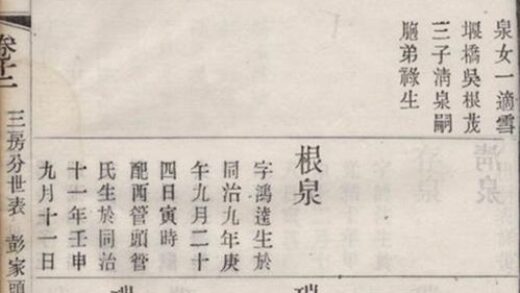 泉女一適雪
堰橋吳根茂
三子淸泉嗣
胞弟祿生
根泉
字鴻達生於
同治九年庚
午九月二十
四日寅時
配西管頭管
氏生於同治
十一年壬申
九月十一日
卷十二
三房分世表 彭家頭